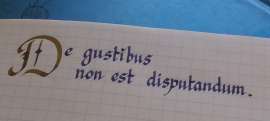 De gustibus
non est disputandum.